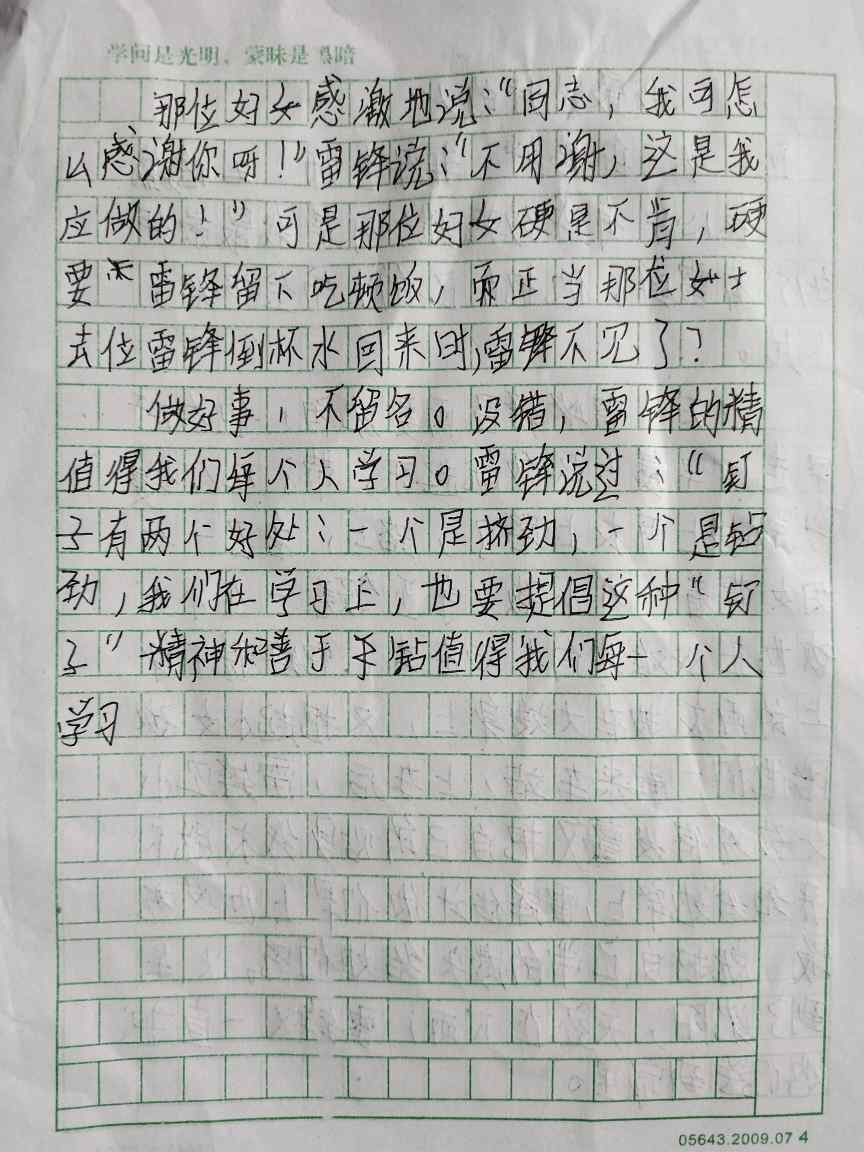 学问是光明，蒙昧是黑暗
那位好女感激地说：“同志，我可怎
么感谢你呀！”雷锋说：“不用谢，这是我
应做的！”可是那位好女硬是不肯，硬
要 雷锋留下吃顿饭，而正当那位女士
去位雷锋倒杯水回来时，雷锋不见了？
做好事，不留名。没错，雷锋的精
值得我们每个人学习。雷锋说过：“钉
子有两个好处：一个是挤劲，一个是钻
劲，我们在学习上，也要提倡这种“钉
子”精神和善于于钻值得我们每一个人
学习
05643.2009.07 4